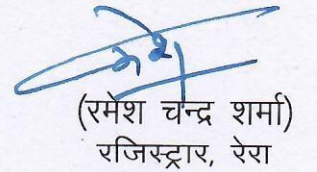 रमेश
(रमेश चन्द्र शर्मा)
रजिस्ट्रार, रेरा